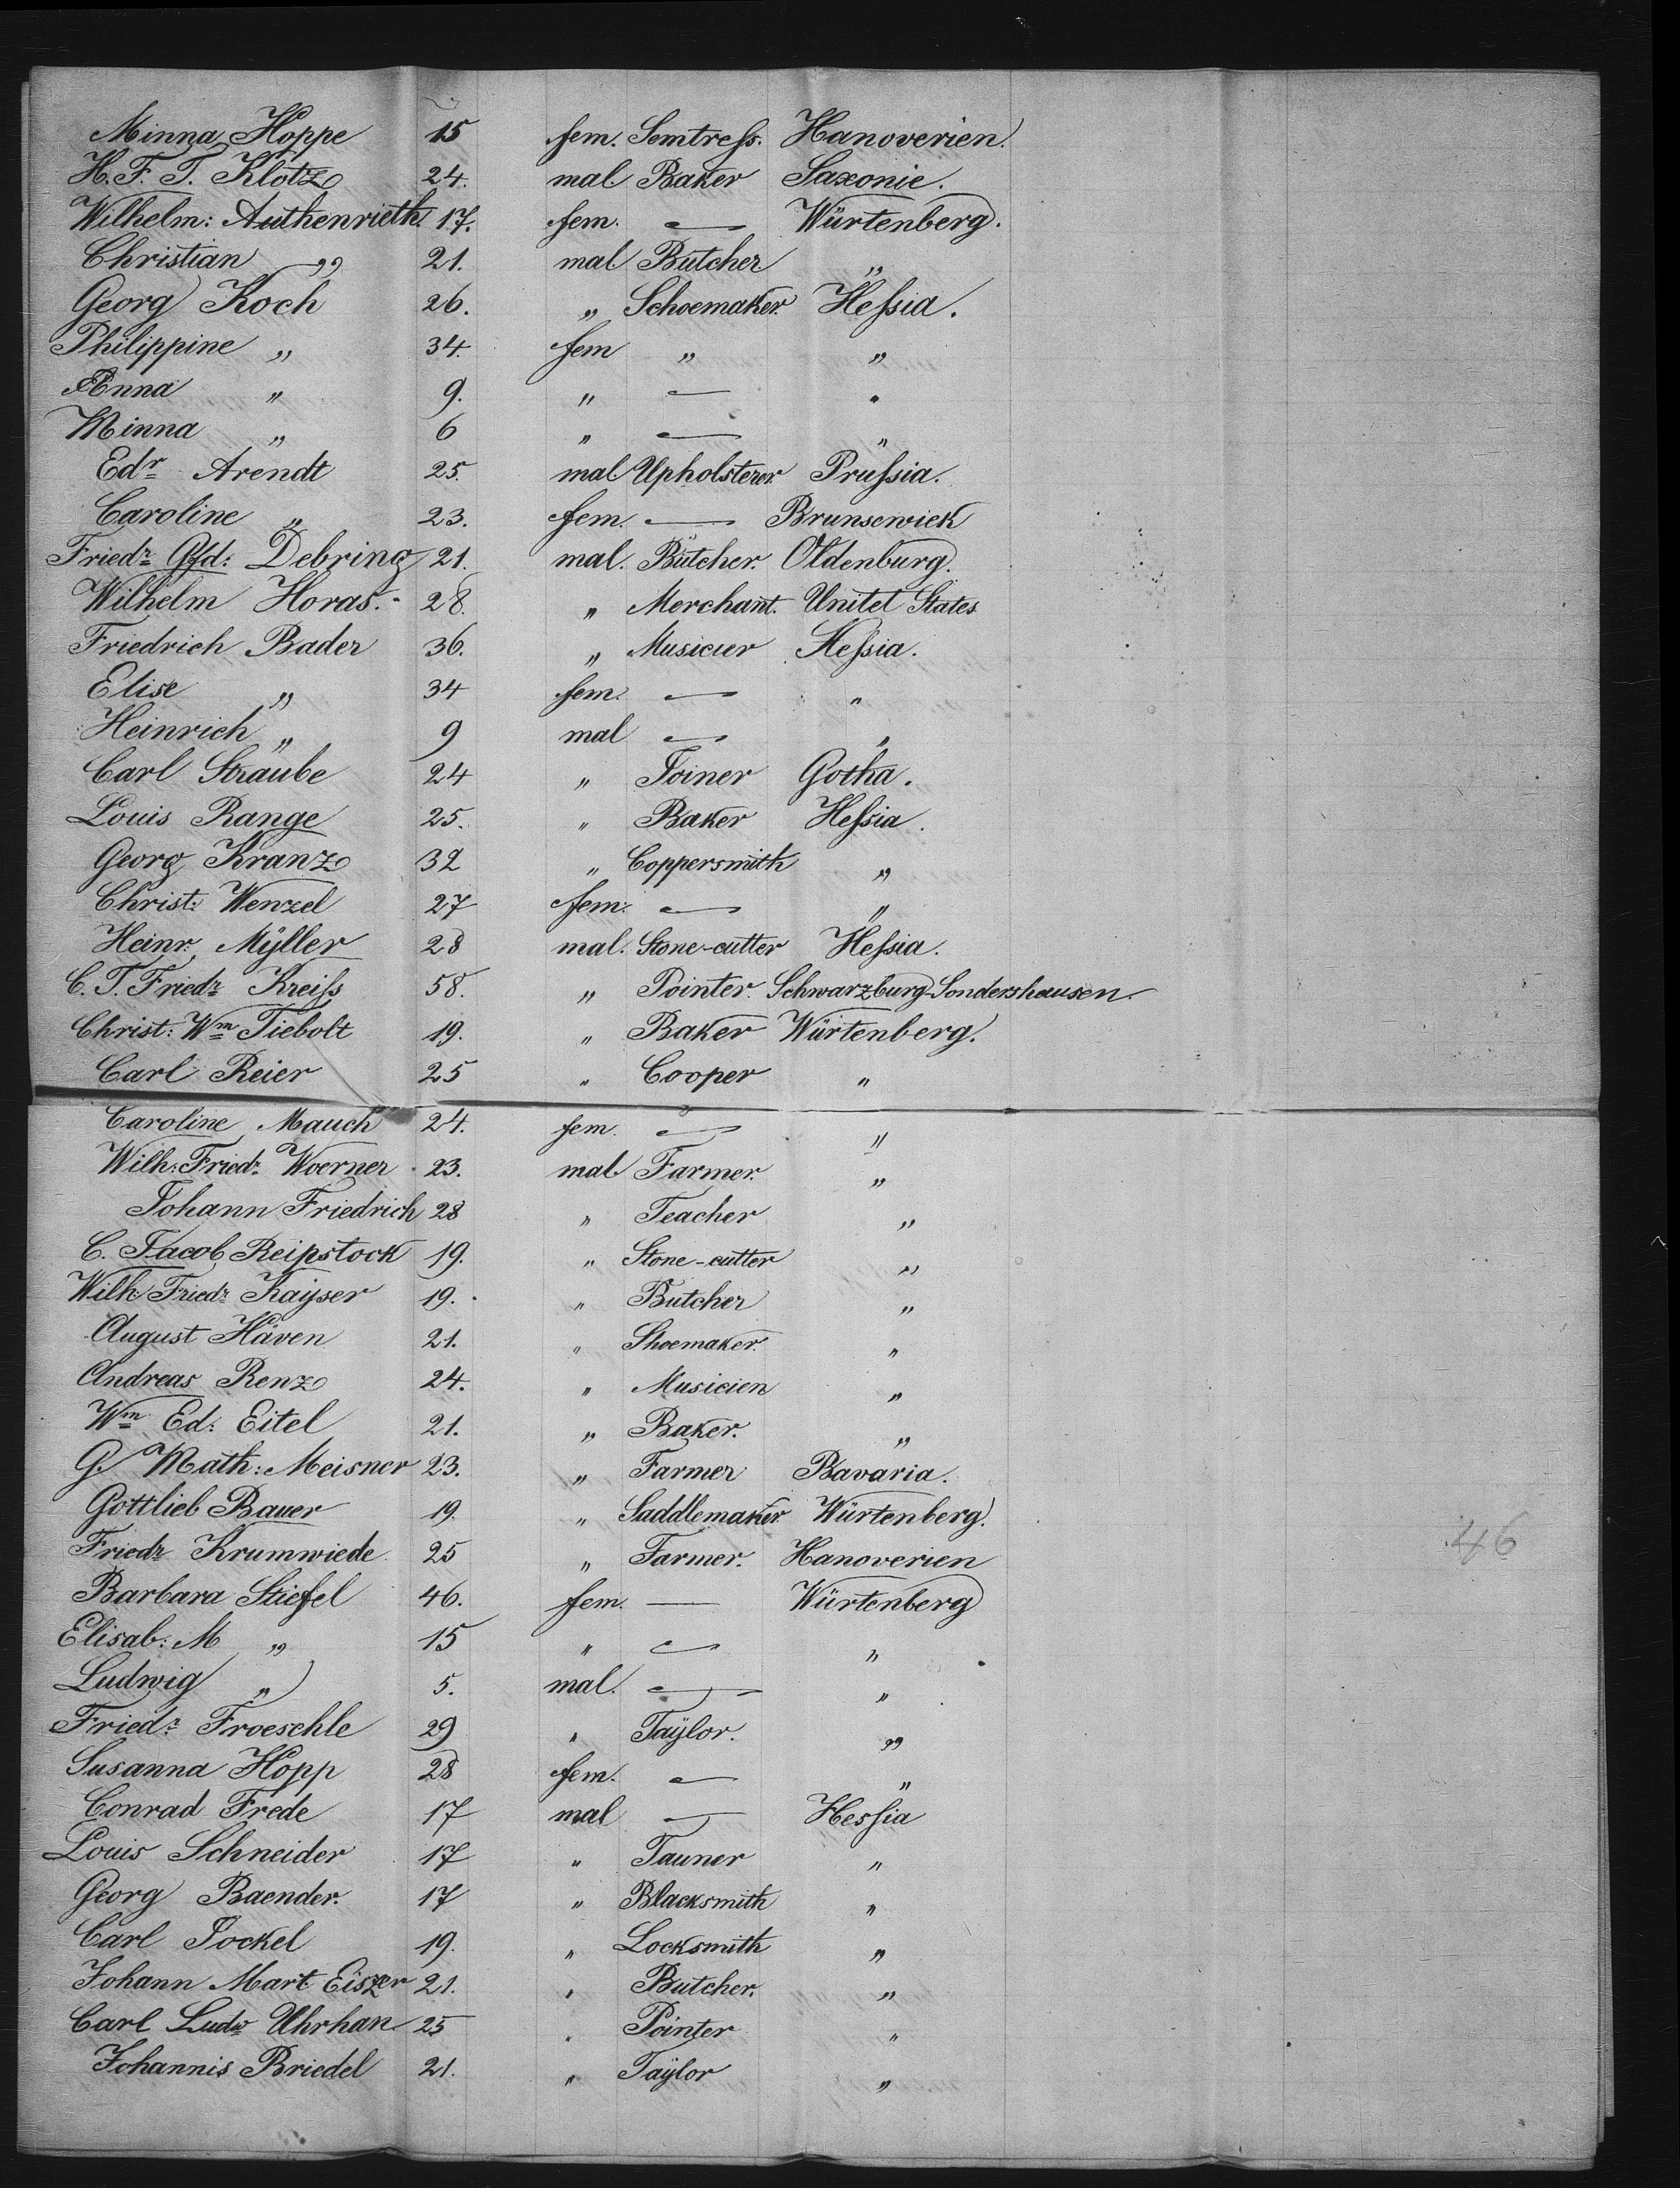 Minna Hoppe 15 fem. Semtreſs. Hanoverien.
H. F. T. Klotz 24. mal Baker Saxonie.
Wilhelm: Authenrieth. 17. fem. — Würtenberg.
Christian „ 21. mal Butcher „
Georg Koch 26. „ Schoemaker. Heſsia.
Philippine „ 34. fem „ „
Anna „ 9. „ — „
Minna „ 6 „ — „
Edr Arendt 25. mal. Upholsterer. Pruſsia.
Caroline „ 23. fem. — Brunsewick
Friedr Gfd: Debring 21. mal. Butcher. Oldenburg.
Wilhelm Horas. 28. „ Merchant. Unitet States
Friedrich Bader 36. „ Musicier Heſsia.
Elise „ 34 fem. — „
Heinrich „ 9 mal — „
Carl Straube 24 „ Joiner Gotha.
Louis Range 25. „ Baker Heſsia.
Georg Kranz 32 „ Coppersmith „
Christ: Wenzel 27 fem. — „
Heinr: Mÿller 28 mal. Stone-cutter Heſsia.
C. T. Friedr Kreiſs 58. „ Pointer. Schwarzburg-Sondershausen.
Christ: Wm Tiebolt 19. „ Baker Würtenberg.
Carl Reier 25 „ Cooper „
Caroline Mauch 24. fem. — „
Wilh: Friedr Woerner 23. mal Farmer. „
Johann Friedrich 28 „ Teacher „
C. Jacob Reipstock 19. „ Stone-cutter „
Wilh Friedr Kaÿser 19. „ Butcher „
August Häven 21. „ Shoemaker. „
Andreas Renz 24. „ Musicien „
Wm Ed: Eitel 21. „ Baker. „
G. Math: Meisner 23. „ Farmer Bavaria.
Gottlieb Bauer 19. „ Saddlemaker Würtenberg.
Friedr Krumwiede 25 „ Farmer. Hanoverien
46
Barbara Stiefel 46. fem. — Würtenberg
Elisab: M „ 15 „ — „
Ludwig „ 5. mal. — „
Friedr Froeschle 29 „ Taÿlor. „
Susanna Hopp 28 fem. — „
Conrad Frede 17 mal — Hesſia
Louis Schneider 17 „ Tauner „
Georg Baender. 17 „ Blacksmith „
Carl Jockel 19. „ Locksmith „
Johann Mart Eiszer 21. „ Butcher. „
Carl Ludw Uhrhan 25 „ Pointer „
Johannis Briedel 21. „ Taÿlor „